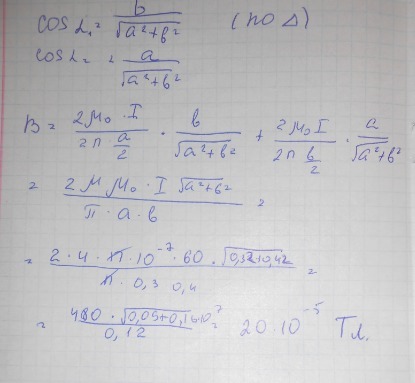 cos α₁ = b / √(a²+b²) (по Δ)
cos α₂ = a / √(a²+b²)
B = (2μ₀·I) / (2π a/2) · b / √(a²+b²) + (2μ₀I) / (2π b/2) · a / √(a²+b²)
= (2μμ₀·I √(a²+b²)) / (π·a·b) =
= (2·4·π·10⁻⁷·60·√(0,3²+0,4²)) / (π·0,3 0,4) =
= (480·√(0,09+0,16)·10⁻⁷) / 0,12 = 20·10⁻⁵ Тл.